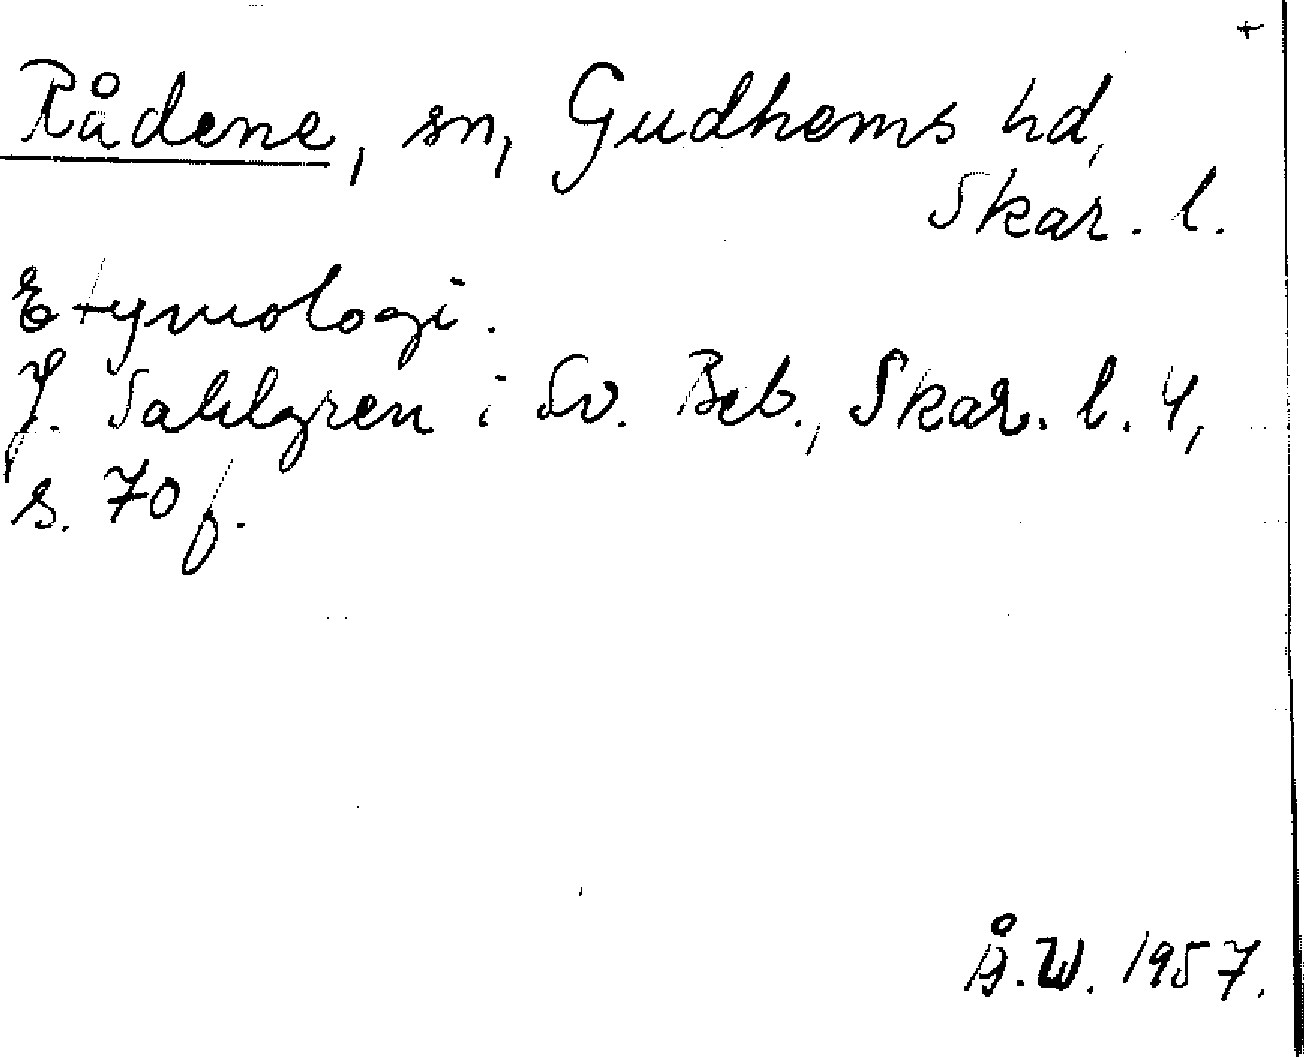 +
Rådene, sn, Gudhems hd,
Skar. l.
Etymologi.
J. Sahlgren i Sv. Beb., Skar. l. 4,
s. 70 f.
Å.W. 1957.